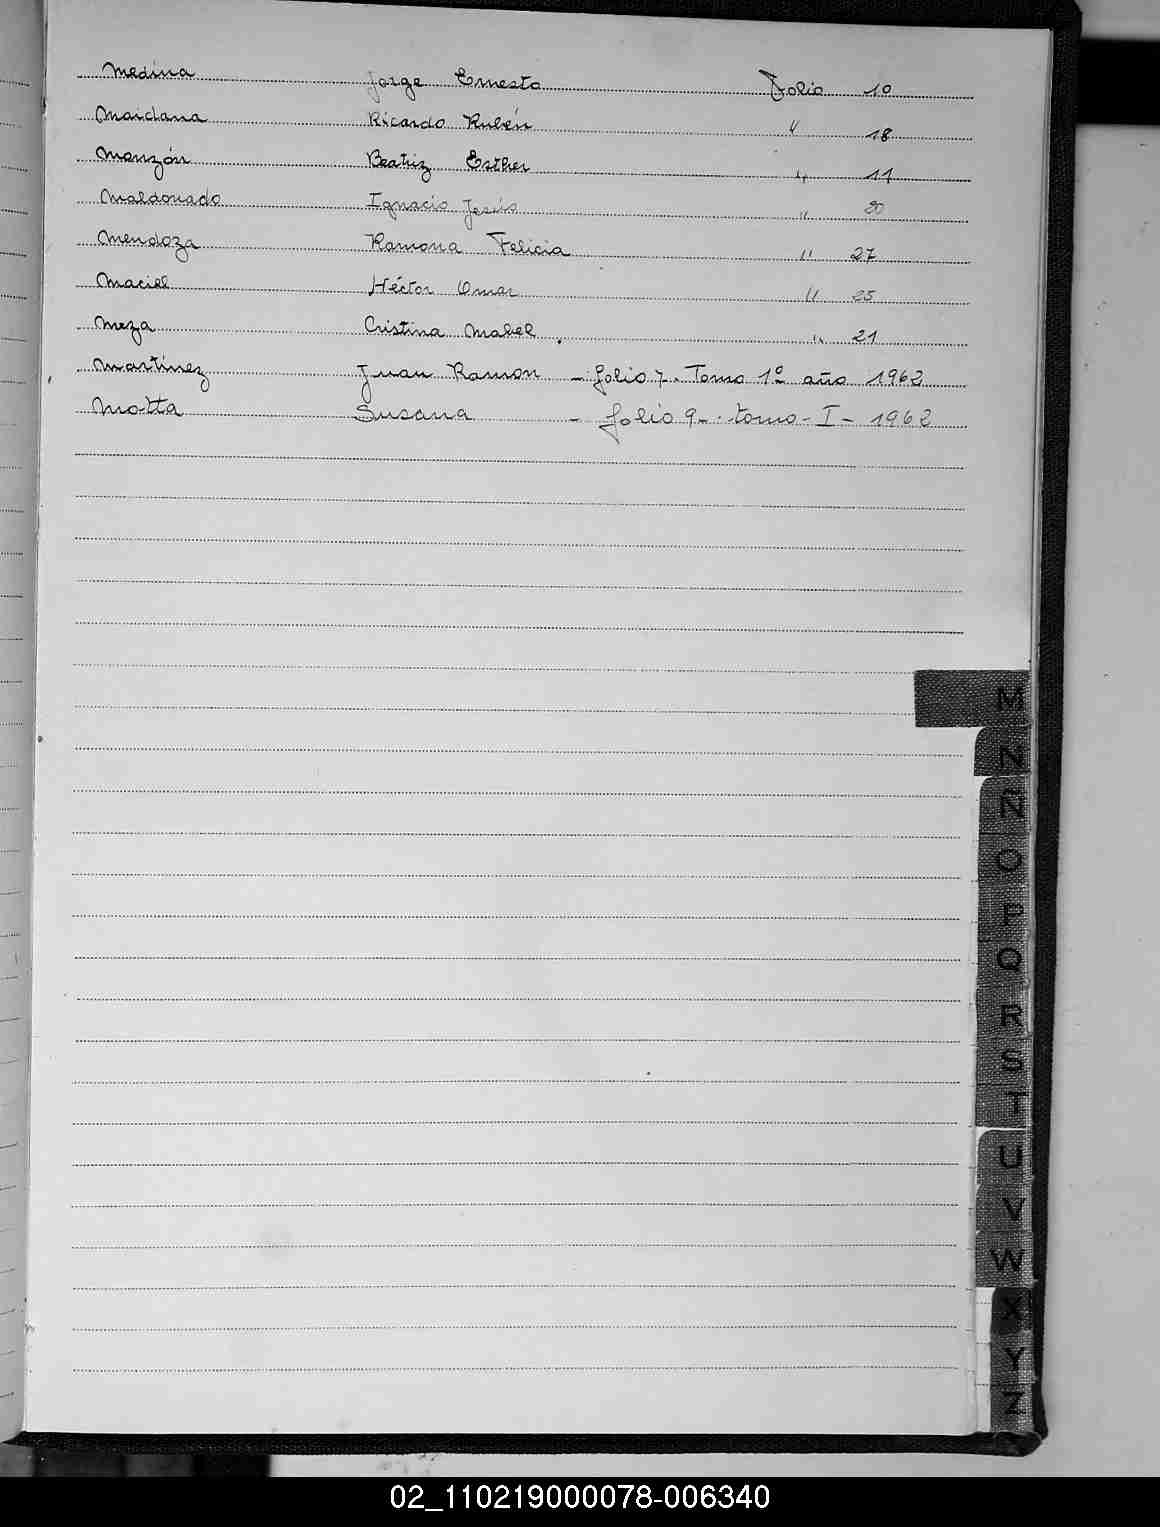 Medina Jorge Ernesto Folio 10
Maidana Ricardo Rubén " 18
Monzón Beatriz Esther " 11
Maldonado Ignacio Jesús " 20
Mendoza Ramona Felicia " 27
Maciel Héctor Omar " 25
Meza Cristina Mabel. " 21
Martínez Juan Ramon - folio 7. Tomo 1º año 1962
Motta Susana - folio 9-. tomo - I - 1962
M
N
Ñ
O
P
Q
R
S
T
U
V
W
X
Y
Z
02_110219000078-006340